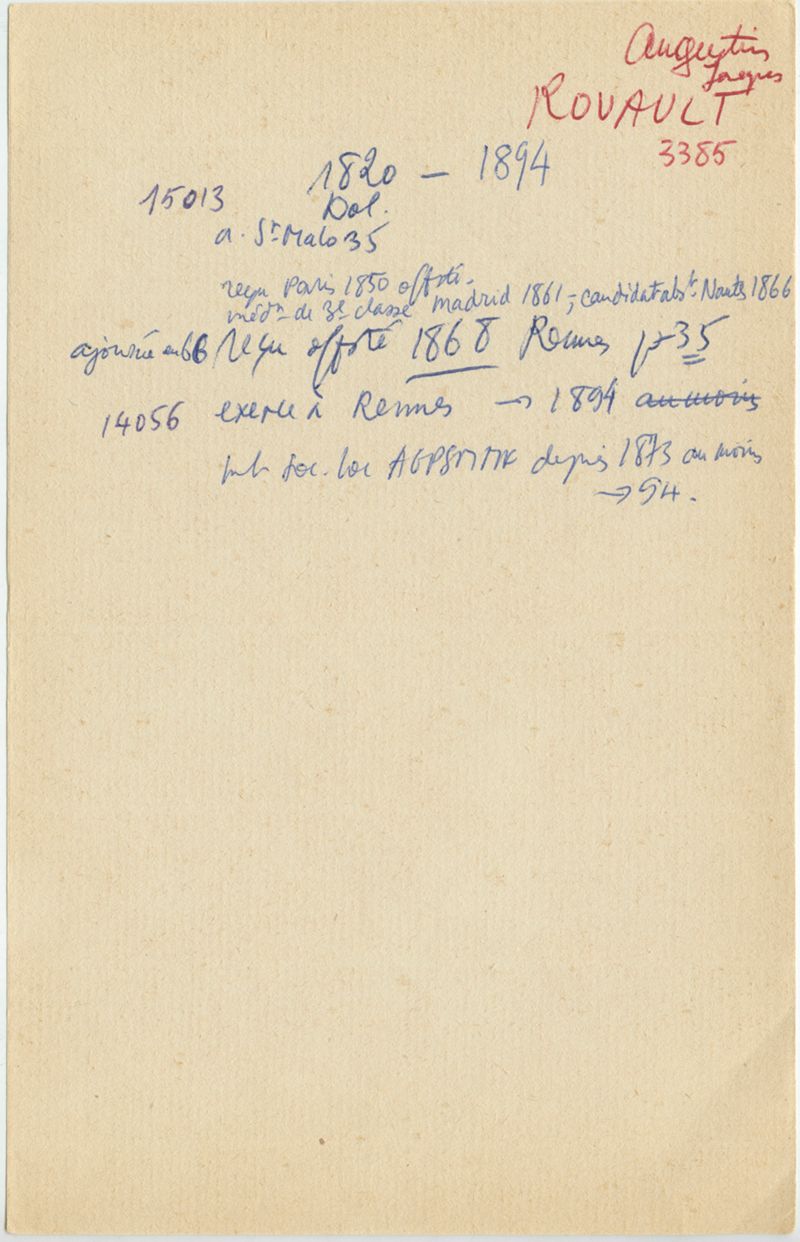 Augustin
Jacques
ROUAULT
3385
1820 – 1894
15013
Dol.
a. St Malo 35
reçu Paris 1850 off sté.
médn de 3e classe Madrid 1861, candidat abst. Nantes 1866
ajourné en 66 reçu off sté 1868 Rennes pr 35
14056 exerce à Rennes → 1894 au moins
Soc. loc AGPSMMK depuis 1873 au moins
→ 94.